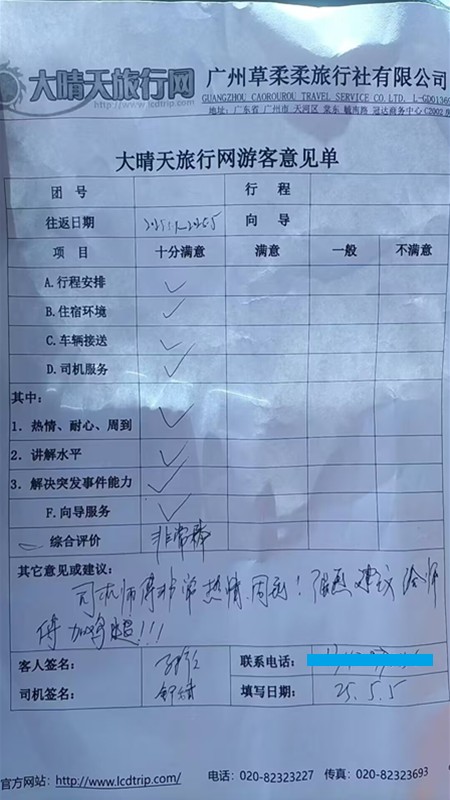 大晴天旅行网 广州草柔柔旅行社有限公司
http://www.lcdtrip.com GUANGZHOU CAOROUROU TRAVEL SERVICE CO.LTD. L-GD0136
地址: 广东省 广州市 天河区 棠东 毓南路 冠达商务中心C2002
大晴天旅行网游客意见单
团 号 行 程
往返日期 向 导
项 目 十分满意 满意 一般 不满意
A.行程安排 ✓
B.住宿环境 ✓
C.车辆接送 ✓
D.司机服务 ✓
其中:
1. 热情、耐心、周到 ✓
2. 讲解水平 ✓
3. 解决突发事件能力 ✓
F.向导服务 ✓
综合评价 非常棒
其它意见或建议:
司机师傅非常热情、周到!强烈建议给师
傅加鸡腿!!!
客人签名: 联系电话:
司机签名: 填写日期: 25.5.5
官方网站: http://www.lcdtrip.com/ 电话: 020-82323227 传真: 020-82323693